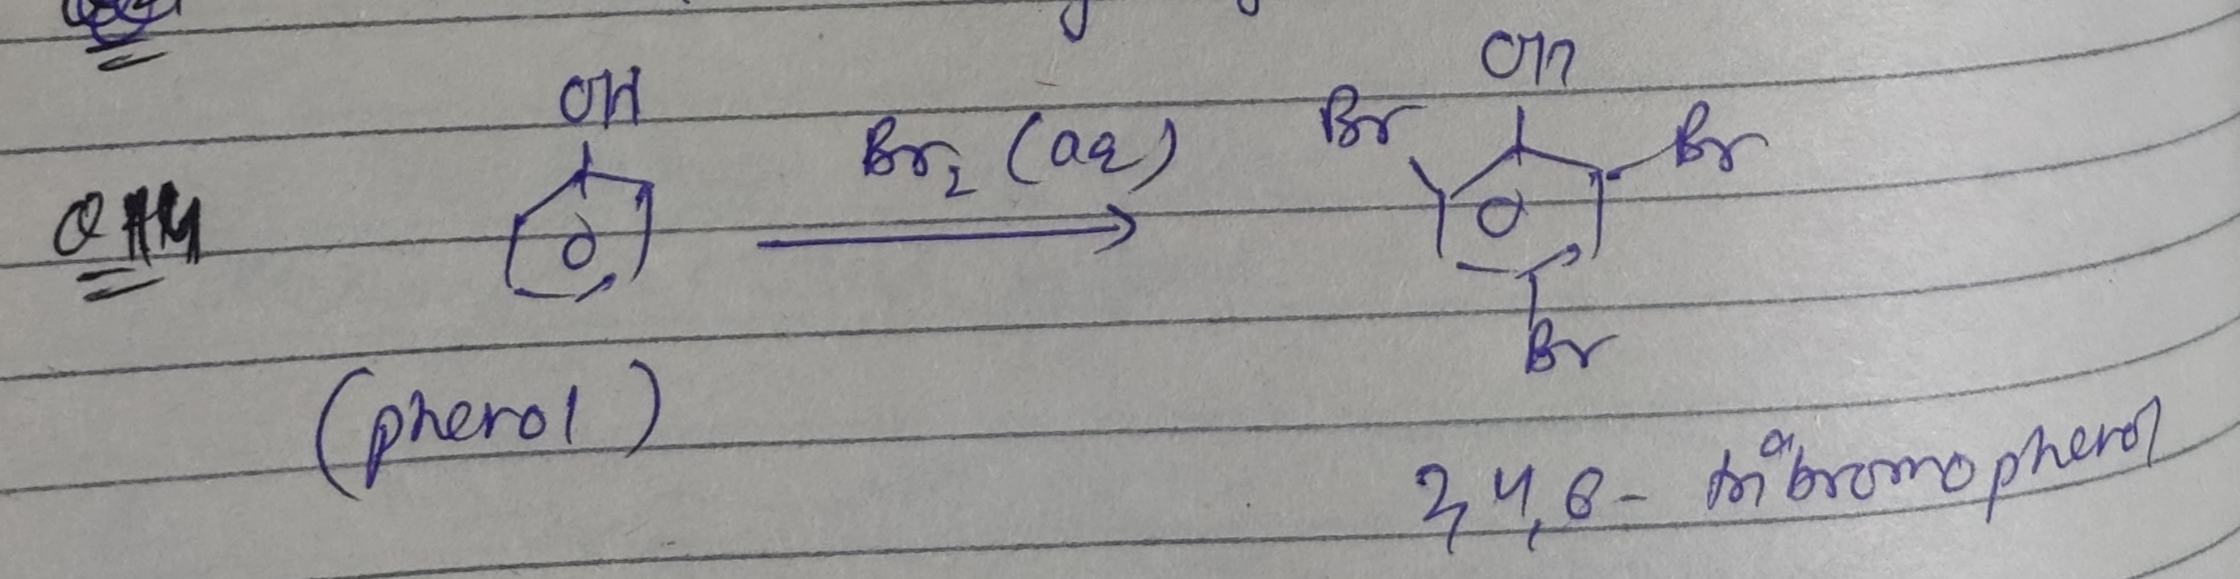 OH
OH
Br
Br
Br₂ (aq)
Br
(phenol)
2,4,6- tribromophenol